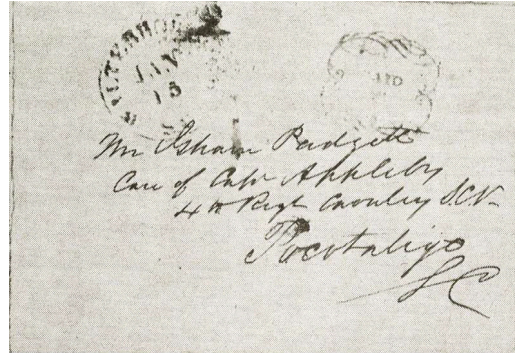 WALTERBORO
JAN
15
PAID
Mr Isham Padgett
Care of Capt Appleby
4th Regt Cavalry SCV
Pocotaligo
SC